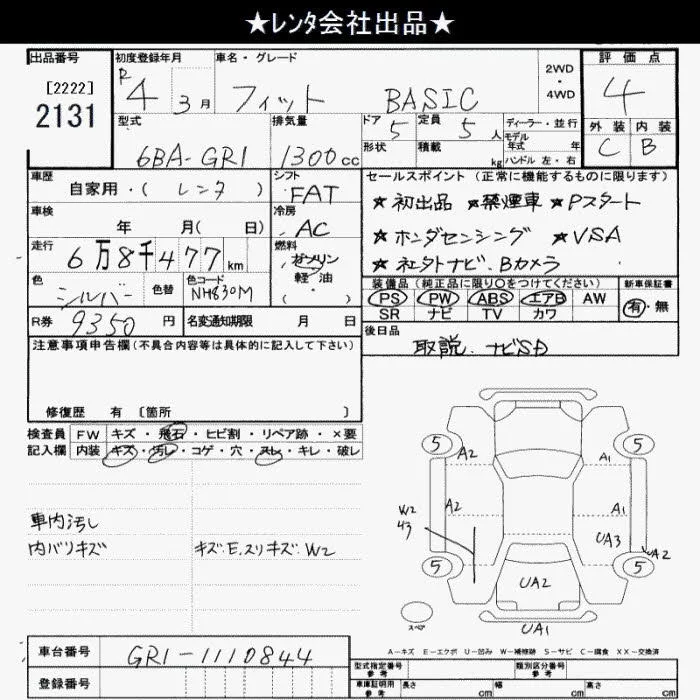 ★レンタ会社出品★
出品番号
[2222]
2131
初度登録年月
R4 3月
車名・グレード
フィット BASIC
2WD
・
4WD
評価点
4
外装 内装
C B
型式
6BA-GR1
排気量
1300cc
ドア 5
形状
定員 5人
積載 kg
ディーラー・並行
モデル年式 年
ハンドル 左・右
車歴
自家用・(レンタ)
シフト
FAT
セールスポイント(正常に機能するものに限ります)
★初出品 ★禁煙車 ★Pスタート
★ホンダセンシング ★VSA
★社外ナビ、Bカメラ
車検
年 月(日)
冷房
AC
走行
6万8千477km
燃料
ガソリン
軽油
( )
色
シルバー
色替
色コード
NH830M
装備品(純正品に限り○をつけてください)
PS PW ABS エアB AW
SR ナビ TV カワ
新車保証書
有・無
R券 9350円
名変通知期限 月 日
後日品
取説、ナビSD
注意事項申告欄(不具合内容等は具体的に記入して下さい)
修復歴 有〔箇所 〕
検査員
記入欄
FW キズ・飛石・ヒビ割・リペア跡・×要
内装 キズ・汚レ・コゲ・穴・スレ・キレ・破レ
車内汚し
内バリキズ
キズ.E.スリキズ.W2
5 5
A2 A1
W2
43
A2 A1
UA3
UA2
5 5
UA2
スペア
UA1
A-キズ E-エクボ U-凹み W-補修跡 S-サビ C-腐食 XX-交換済
車台番号 GR1-1110844
登録番号
型式指定番号
参考
類別区分番号
参考
車庫証明用
参考
長さ cm 幅 cm 高さ cm